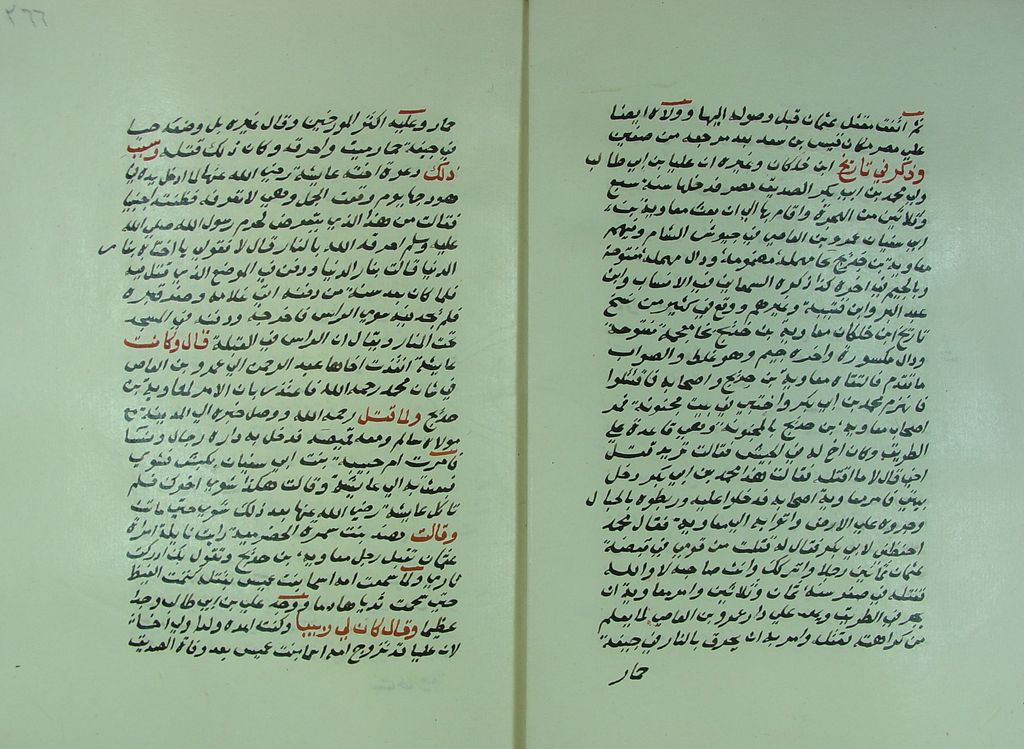 ثم اتفق مقتل عثمان قبل وصوله اليها وولاه ايضا
علي مصر مكان قيس بن سعد بعد مرجعه من صفين
وذكر في تاريخ ابن خلكان وغيره ان عليا بن ابي طالب
ولي محمد بن ابي بكر الصديق مصر فدخلها سنة سبع
وثلاثين من الهجرة واقام بها الي ان بعث معاوية بن
ابي سفيان عمرو بن العاص في جيوش الشام ومعهم
معاوية بن حديج بحا مهملة مضمومة ودال مهملة مفتوحة
وبالجيم في اخره كذا ذكره السمعاني في الانساب وابن
عبد البر وابن قتيبة وغيرهم ووقع في كثير من نسخ
تاريخ ابن خلكان معاوية بن خديج بخا معجمة مفتوحة
ودال مكسورة واخره جيم وهو غلط والصواب
ما تقدم فالتقاه معاوية بن حديج واصحابه فاقتتلوا
فانهزم محمد بن ابي بكر واختبي في بيت مجنونة فمر
اصحاب معاوية بن حديج بالمجنونة وهي قاعدة علي
الطريق وكان اخ لها في الجيش فقالت تريد قتل
اخي قال لا ما اقتله فقالت هذا محمد بن ابي بكر دخل
بيتي فامر معاوية اصحابه فدخلوا عليه وربطوه بالحبال
وجروه علي الارض واتوا به الي معاوية فقال محمد
احفظني لابي بكر فقال له قتلت من قومي في قضية
عثمان ثمانين رجلا واتركك وانت صاحبه لا والله
فقتله في صفر سنة ثمان وثلاثين وامر معاوية ان
يجر في الطريق ويمر علي دار عمرو بن العاص لما يعلم
من كراهته لقتله وامر به ان يحرق بالنار في جيفة
حمار
٢٦٦
حمار وعليه اكثر المورخين وقال غيره بل وضعه حيا
في جيفة حمار ميت واحرقه وكان ذلك قتله وسبب
ذلك دعوة اخته عايشة رضي الله عنها لما ادخل يده في
هودجها يوم وقعة الجمل وهي لا تعرفه فظنته اجنبيا
فقالت من هذا الذي يتعرض لحرم رسول الله صلي الله
عليه وسلم احرقه الله بالنار قال لا تقولي يا اختاه بنار
الدنيا قالت بنار الدنيا ودفن في الموضع الذي قتل فيه
فلما كان بعد سنة من دفنه اتي غلامه وحفر قبره
فلم يجد فيه سوي الراس فاخرجه ودفنه في المسجد
تحت المنار ويقال ان الراس في القبلة قال وكانت
عايشة انفذت اخاها عبد الرحمن الي عمرو بن العاص
في شان محمد رحمه الله فاعتذر بان الامر لمعاوية بن
حديج ولما قتل رحمه الله ووصل خبره الي المدينة مع
مولاه سالم ومعه قميصه فدخل به داره رجال ونسا
فامرت ام حبيبة بنت ابي سفيان بكبش فشوي
فبعثته الي عايشة وقالت هكذا شوي اخوك فلم
تاكل عايشة رضي الله عنها بعد ذلك شوي حتي ماتت
وقالت هند بنت سمرة الحضرمية رايت نايلة امراة
عثمان تقبل رجل معاوية بن حديج وتقول بك ادركت
ثاري ولما سمعت امه اسما بنت عميس بقتله كتمت الغيظ
حتي شخبت ثدياها دما ووجد علي بن ابي طالب وجدا
عظيما وقال كان لي ربيبا وكنت اعده ولدا ولبني اخا
لان عليا قد تزوج امه اسما بنت عميس بعد وفاة الصديق